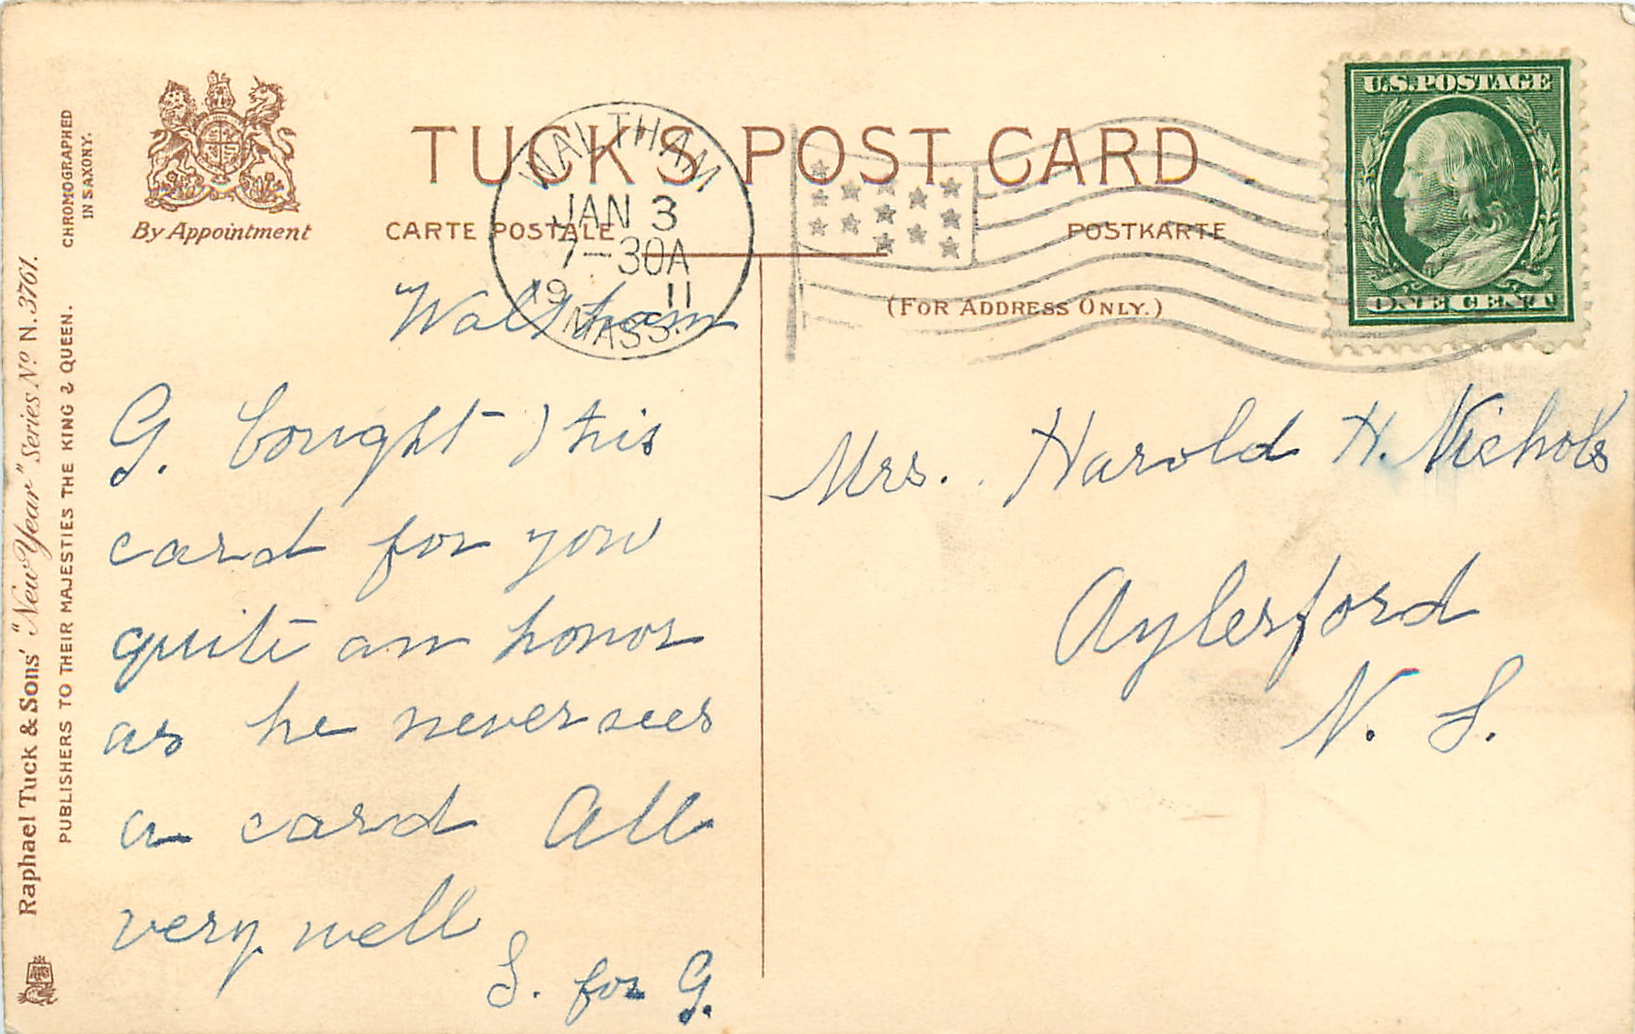 CHROMOGRAPHED
IN SAXONY.
By Appointment
Raphael Tuck & Sons' "New Year" Series Nº N. 3761.
PUBLISHERS TO THEIR MAJESTIES THE KING & QUEEN.
TUCK'S POST CARD
CARTE POSTALE
POSTKARTE
(FOR ADDRESS ONLY.)
WALTHAM
JAN 3
7-30A
19 11
MASS.
U.S. POSTAGE
ONE CENT
Waltham
G. bought this
card for you
quite an honor
as he never sees
a card All
very well
S. for G.
Mrs. Harold H. Nichols
Aylesford
N. S.